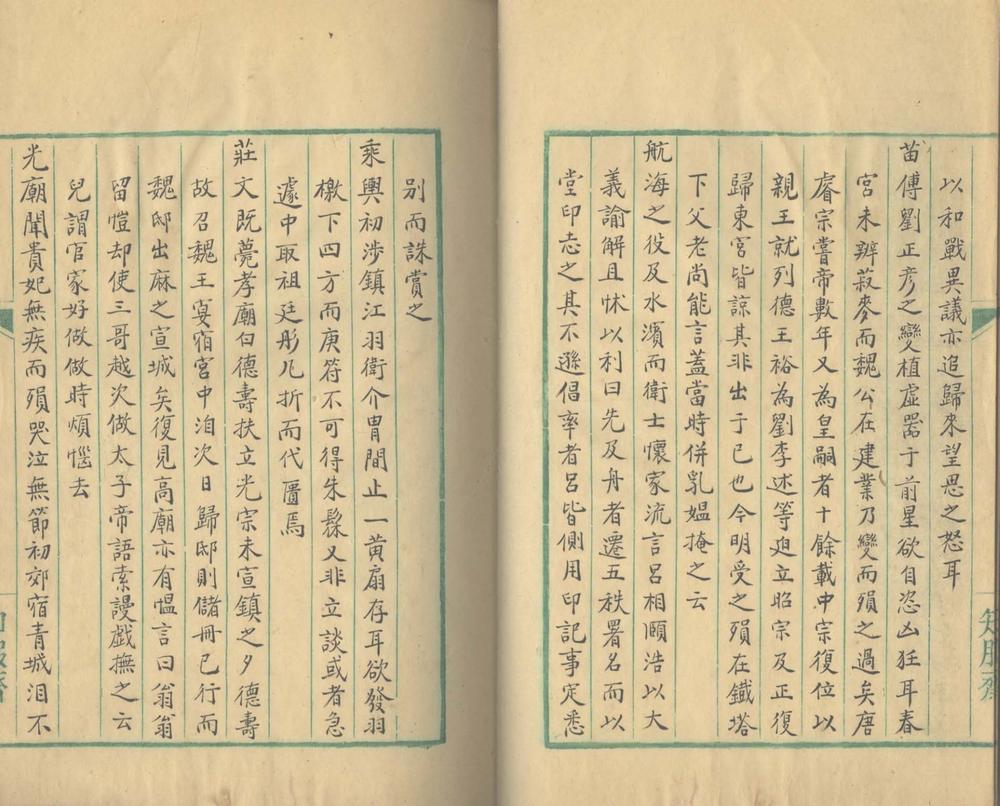 以和戰異議亦追歸來望思之怒耳
苗傅劉正彥之變植虛器于前星欲自恣凶狂耳春
宮未辨菽麥而魏公在建業乃變而殞之過矣唐
睿宗嘗帝數年又為皇嗣者十餘載中宗復位以
親王就列德王裕為劉季述等廹立昭宗及正復
歸東宮皆諒其非出于已也今明受之殞在鐵塔
下父老尚能言蓋當時併乳媪掩之云
航海之役及水濱而衛士懷家流言呂相頤浩以大
義諭解且怵以利曰先及舟者遷五秩署名而以
堂印志之其不遜倡率者呂皆側用印記事定悉
別而誅賞之
乘輿初涉鎮江羽衛介胄間止一黃扇存耳欲發羽
檄下四方而庚符不可得朱髹又非立談或者急
遽中取祖廷彤几折而代匽焉
莊文既薨孝廟白德壽扶立光宗未宣鎮之夕德壽
故召魏王宴宿宮中洎次日歸邸則儲冊已行而
魏邸出麻之宣城矣復見高廟亦有愠言曰翁翁
留愷却使三哥越次做太子帝語索謾戲撫之云
兒謂官家好做做時煩惱去
光廟聞貴妃無疾而殞哭泣無節初郊宿青城泪不
知服齋